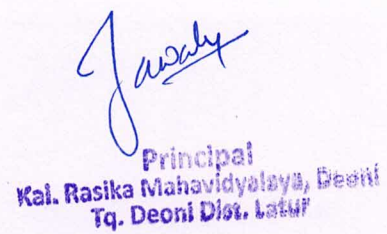 Principal
Kal. Rasika Mahavidyalaya, Deoni
Tq. Deoni Dist. Latur